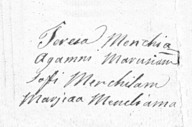 Teresa Menchia
Agamni Marunian
Sofi Menchilam
Marjeaa Mencliama